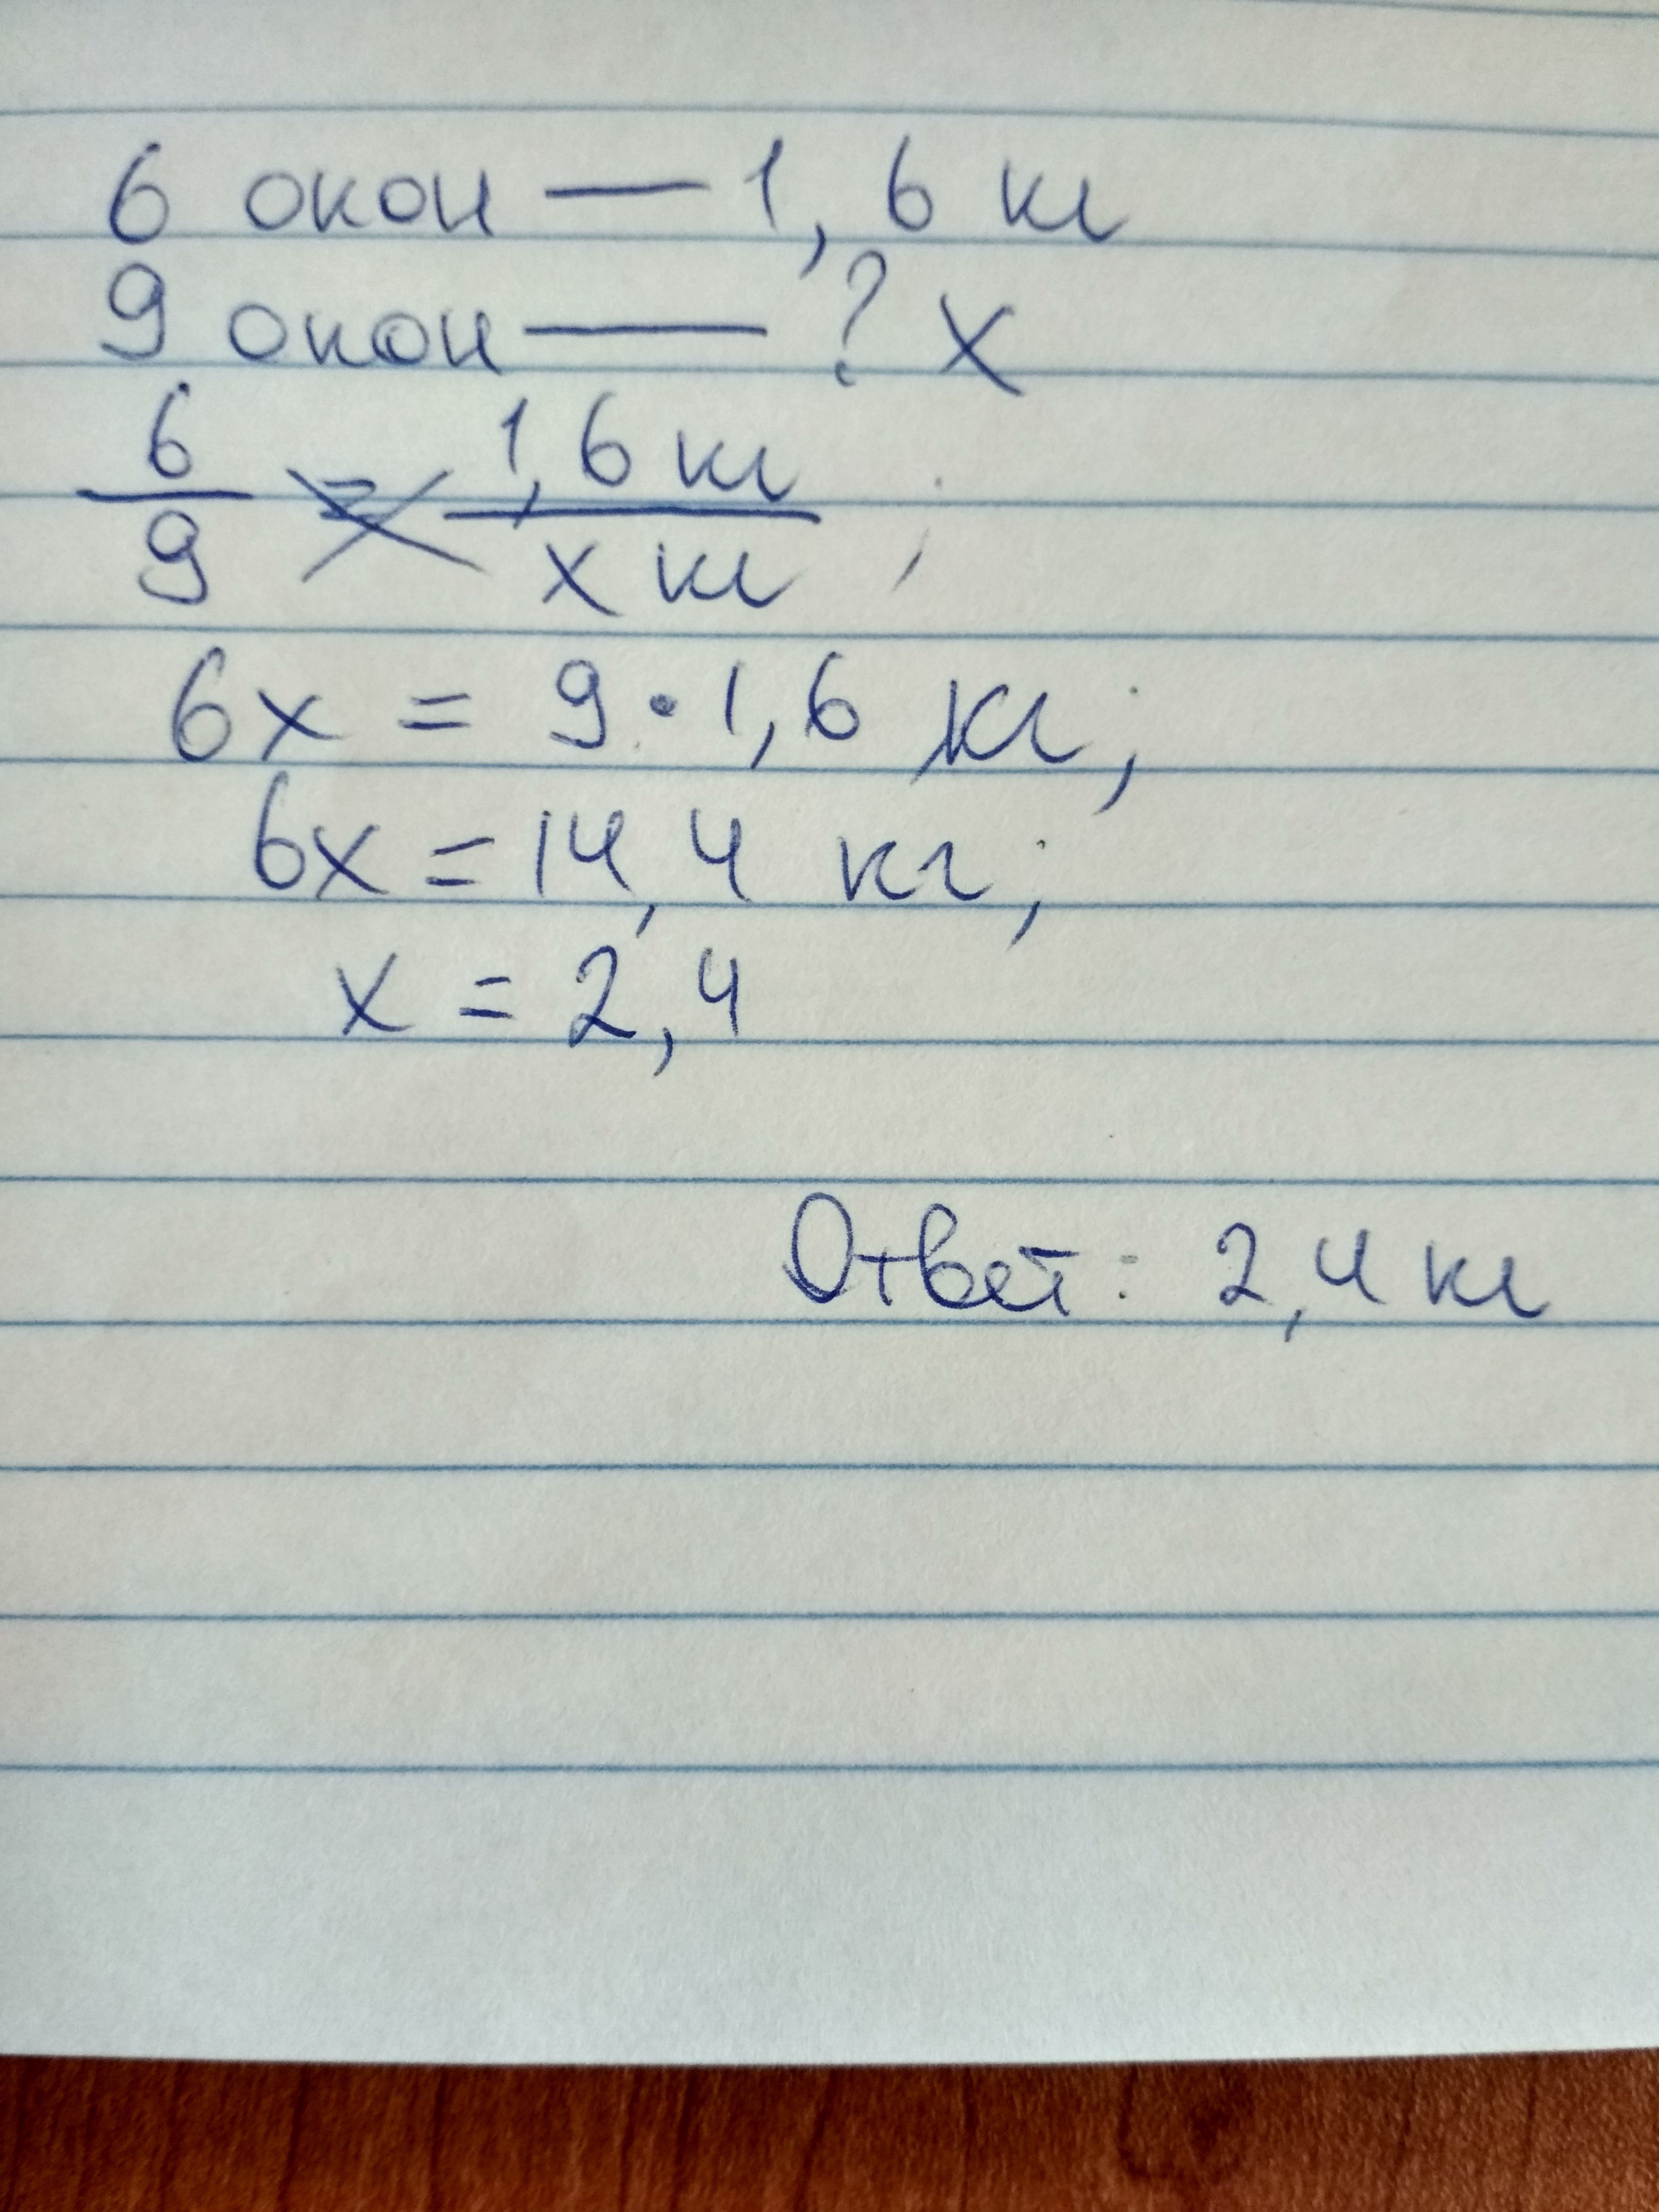 6 окон — 1,6 кг
9 окон — ? х
6/9 = 1,6 кг/х кг;
6х = 9 · 1,6 кг;
6х = 14,4 кг;
х = 2,4
Ответ: 2,4 кг